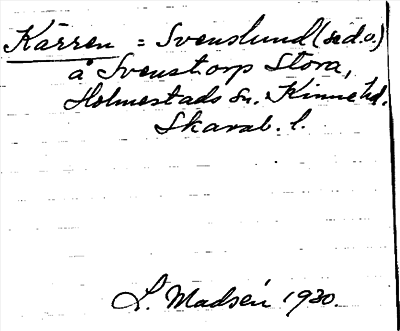 Kärren = Svenslund (se d.o.)
å Svenstorp Stora,
Holmestads sn. Kinne hd.
Skarab. l.
L. Madsén 1930.